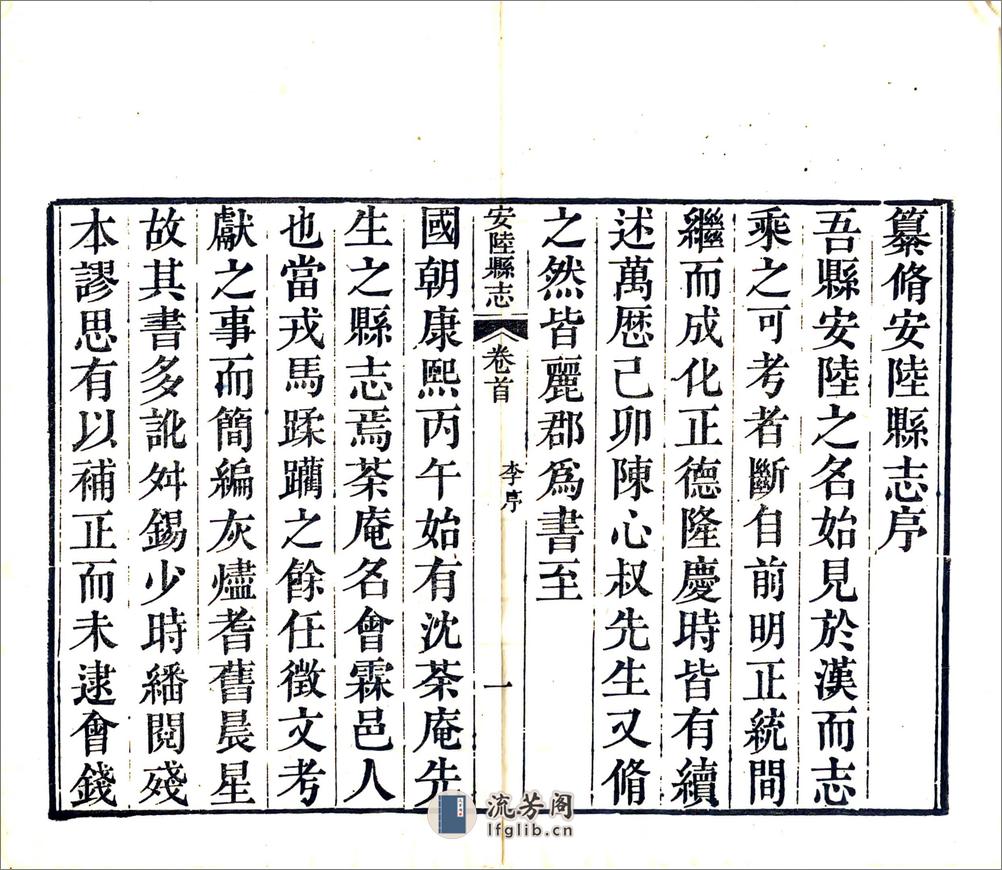 纂脩安陸縣志序
吾縣安陸之名始見於漢而志
乘之可考者斷自前明正統間
繼而成化正德隆慶時皆有續
述萬歴己卯陳心叔先生又脩
之然皆麗郡爲書至
安陸縣志
卷首
李序
一
國朝康熙丙午始有沈茶庵先
生之縣志焉茶庵名會霖邑人
也當戎馬蹂躪之餘任徵文考
獻之事而簡編灰燼耆舊晨星
故其書多訛舛錫少時繙閱殘
本謬思有以補正而未逮會錢
流芳阁
lfglib.cn